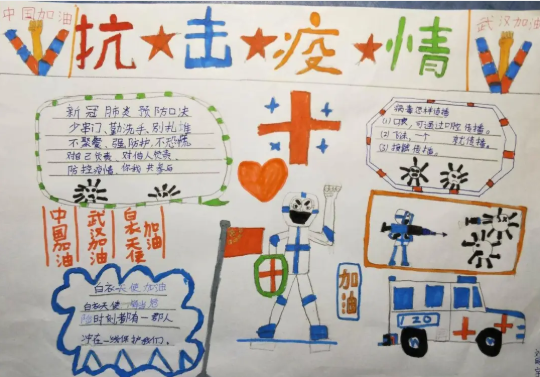 中国加油
抗击疫情
武汉加油
新冠肺炎预防口决
少串门、勤洗手、别扎堆
不聚餐、强防护、不恐慌
对自己负责 对他人负责
防控疫情 你我共参与
病毒怎样传播
(1) 口液,可通过口腔传播。
(2) 飞沫,一 就传播。
(3) 接触传播。
中国加油
武汉加油
白衣天使
加油
加油
白衣天使加油
白衣天使
随时刻都有一群人
冲在一线保护我们。
120